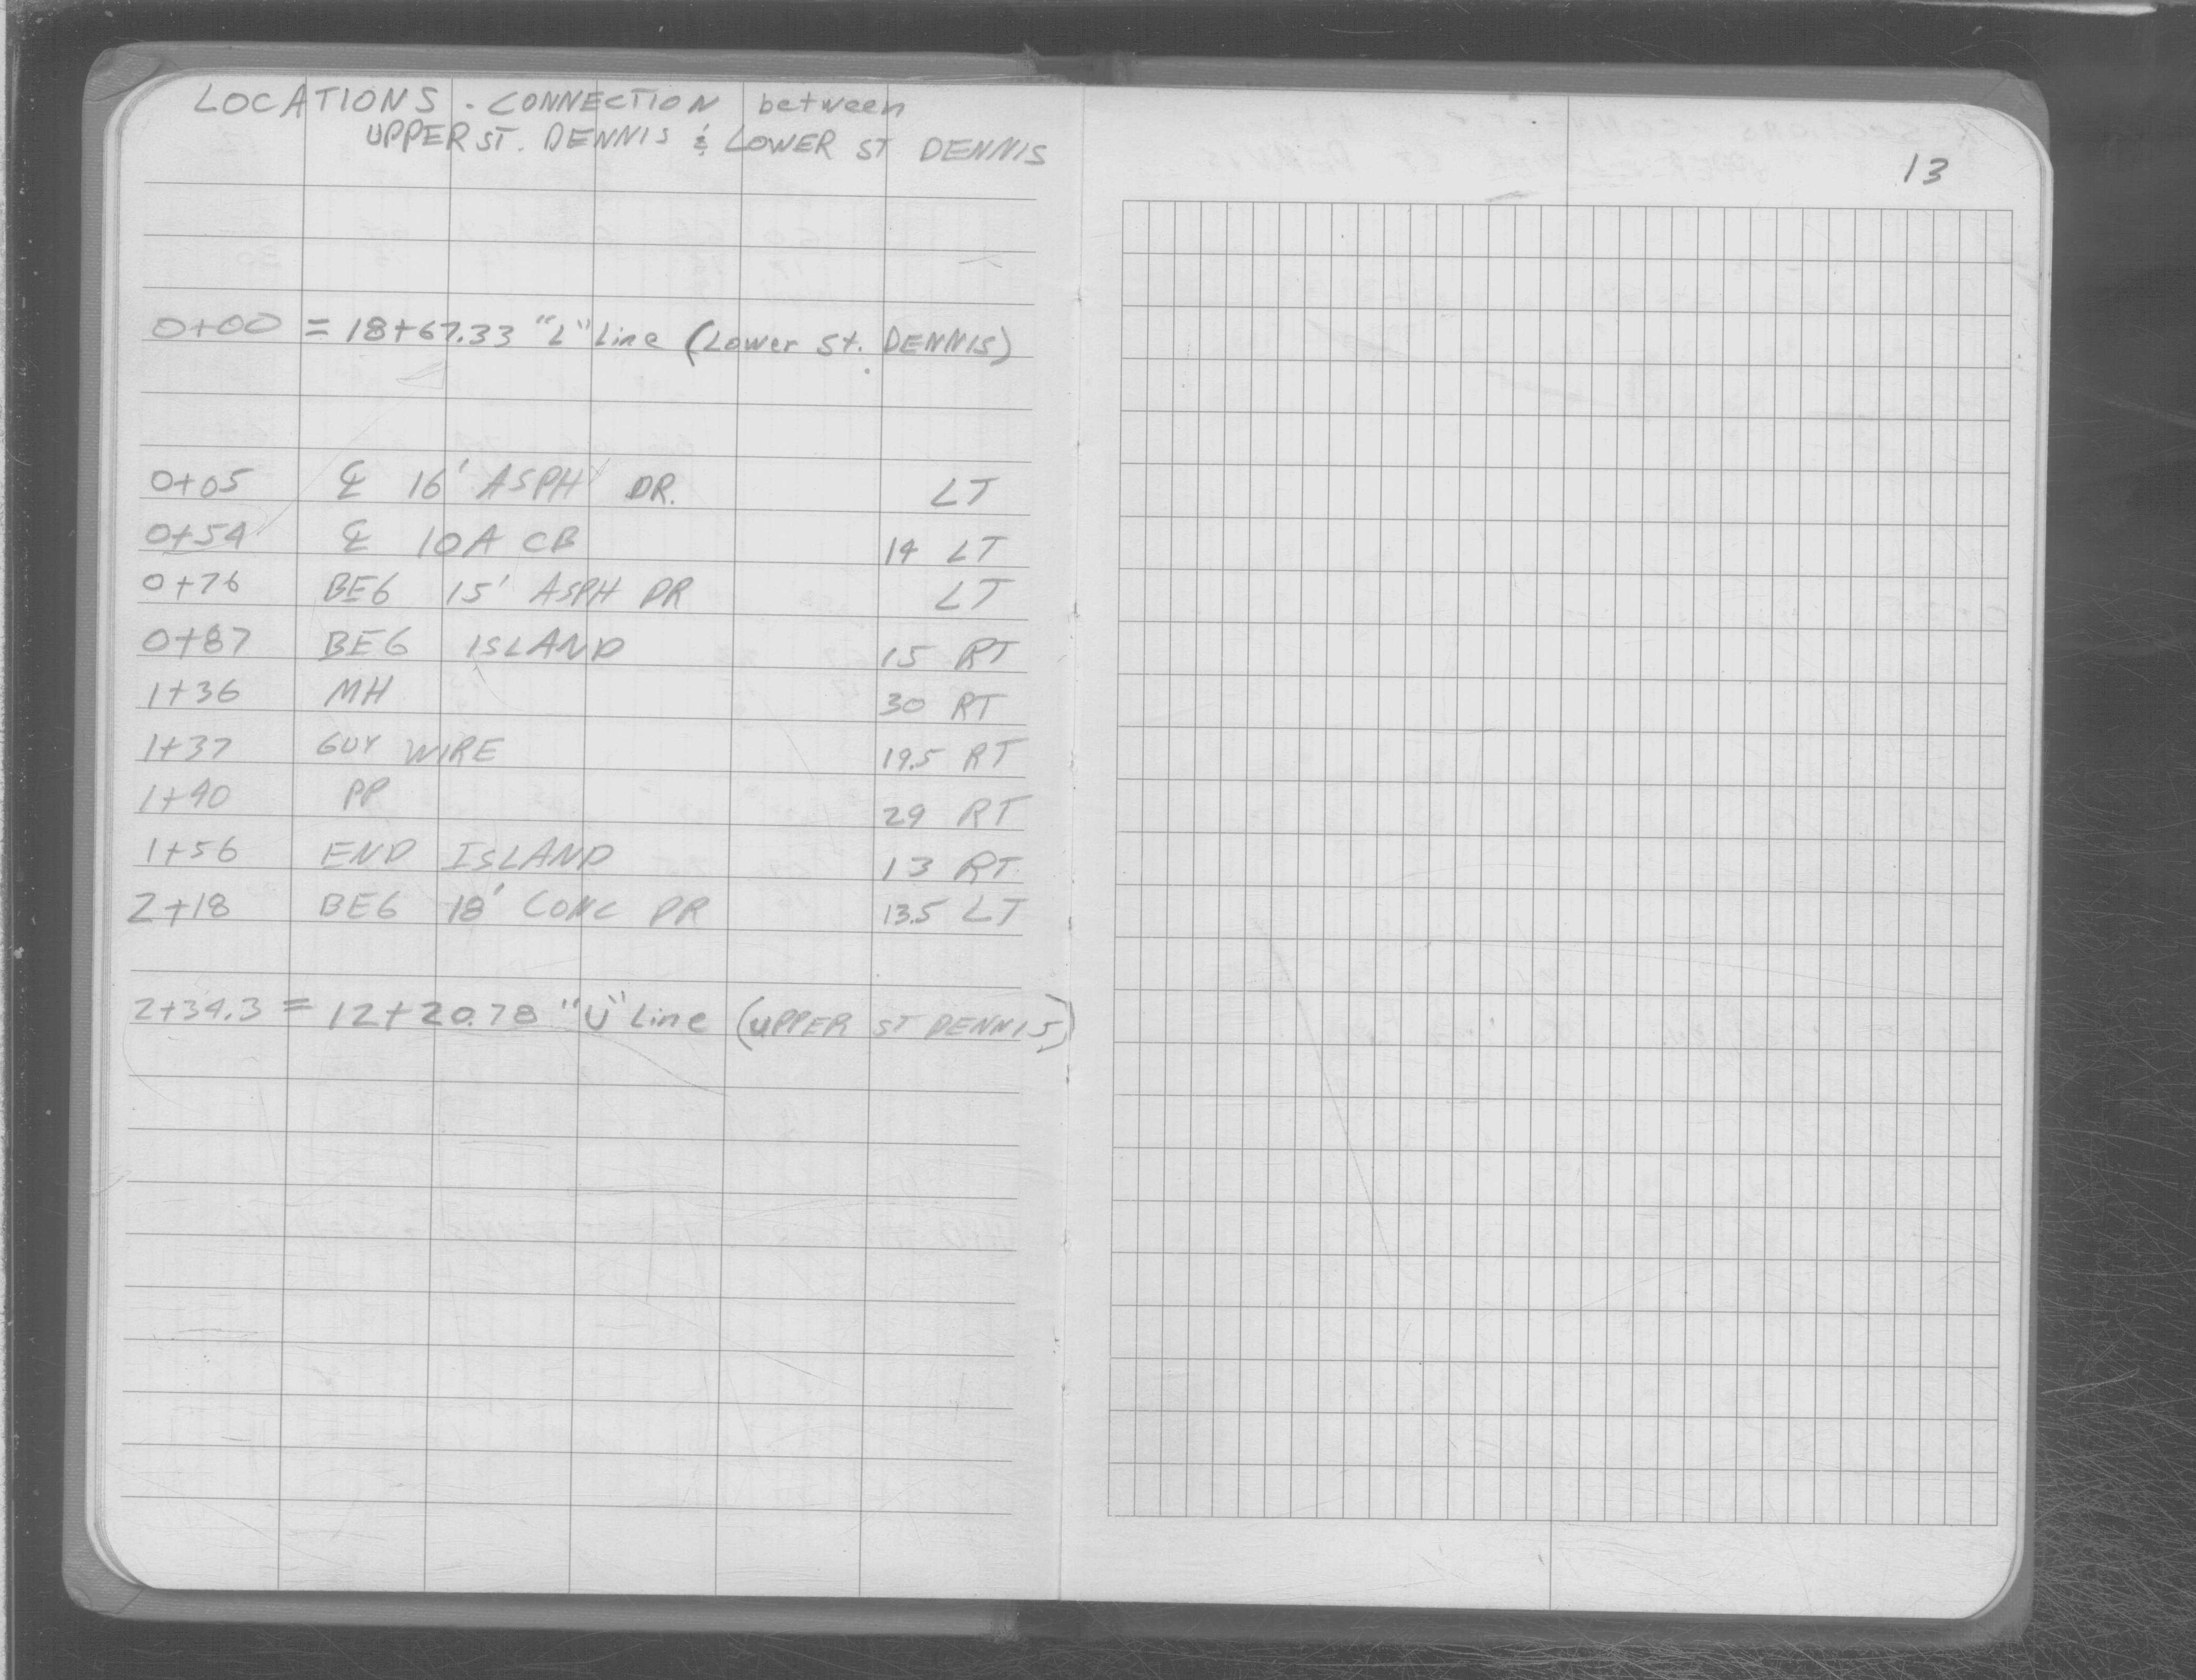 LOCATIONS - CONNECTION between
UPPER ST. DENNIS & LOWER ST DENNIS
13
0+00 = 18+67.33 "L" Line (Lower St. DENNIS)
0+05 ℄ 16' ASPH DR. LT
0+54 ℄ 10A CB 14 LT
0+76 BEG 15' ASPH DR LT
0+87 BEG ISLAND 15 RT
1+36 MH 30 RT
1+37 GUY WIRE 19.5 RT
1+40 PP 29 RT
1+56 END ISLAND 13 RT
2+18 BEG 18' CONC DR 13.5 LT
2+34.3 = 12+20.78 "U" Line (UPPER ST DENNIS)